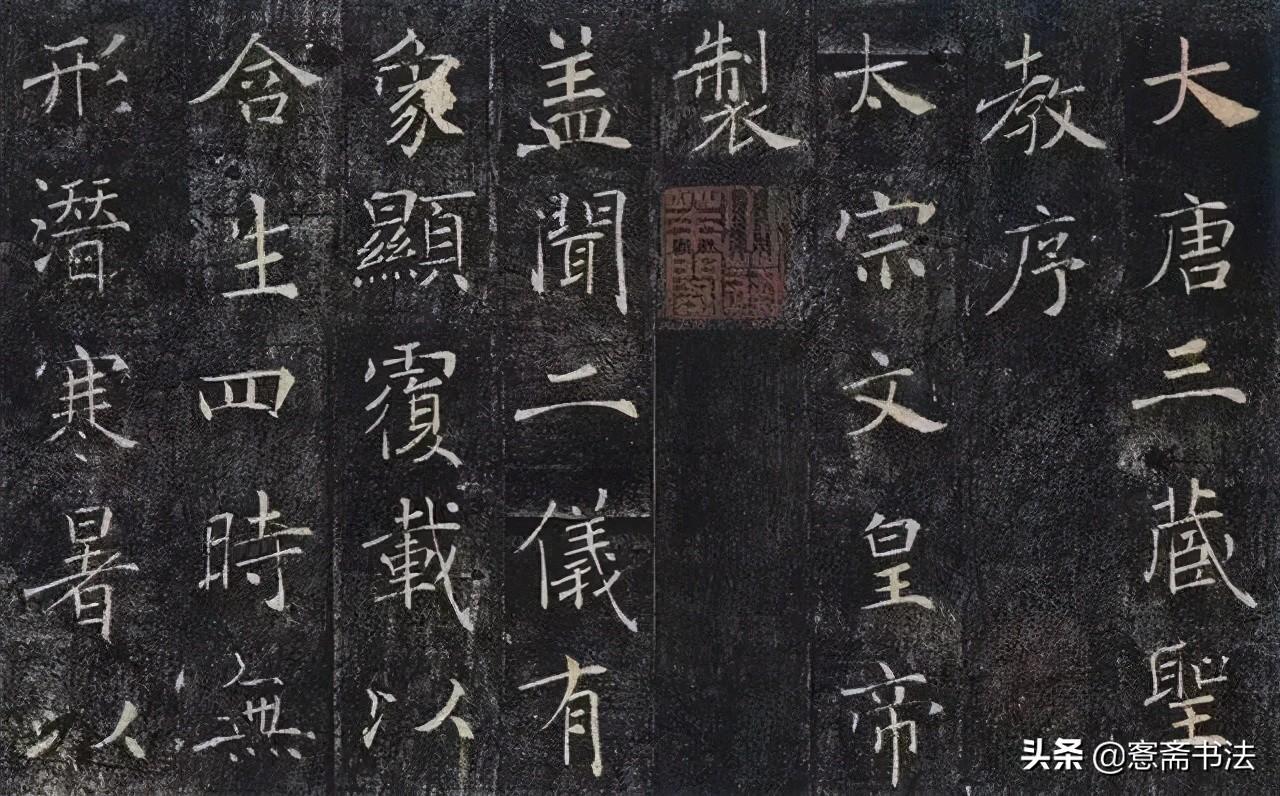 大唐三藏聖
教序
太宗文皇帝
製
盖聞二儀有
象顯覆載以
含生四時無
形潛寒暑以
头条@愙斋书法